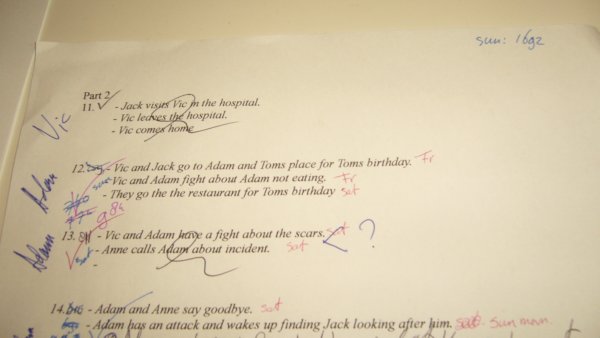 sun: 1692
Part 2
11. - Jack visits Vic in the hospital.
- Vic leaves the hospital.
- Vic comes home
Vic
12. - Vic and Jack go to Adam and Toms place for Toms birthday. Fr
sun - Vic and Adam fight about Adam not eating. Fr
- They go the the restaurant for Toms birthday sat
Adam
985
13. - Vic and Adam have a fight about the scars. sat ?
sat - Anne calls Adam about incident. sat
-
Adam
14. - Adam and Anne say goodbye. sat
- Adam has an attack and wakes up finding Jack looking after him. sat. sun